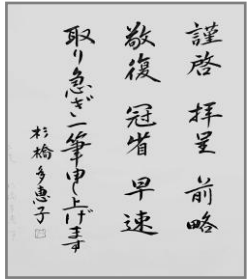 謹啓 拝呈 前略
敬復 冠省 早速
取り急ぎ一筆申し上げます
杉橋多恵子